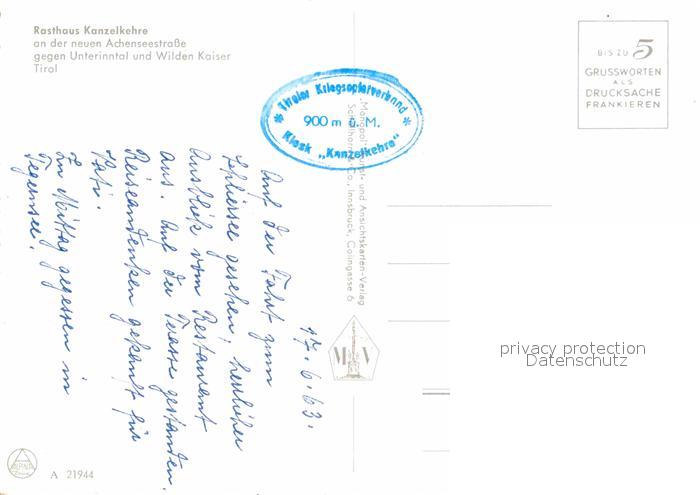 Rasthaus Kanzelkehre
an der neuen Achenseestraße
gegen Unterinntal und Wilden Kaiser
Tirol
Tiroler Kriegsopferverband
900 m ü. M.
Kiosk „Kanzelkehre"
BIS ZU 5
GRUSSWORTEN
ALS
DRUCKSACHE
FRANKIEREN
17.6.63.
Auf der Fahrt zum
Schliersee gesehen, herrlicher
Ausblick vom Restaurant
aus. Auf der Terasse gestanden.
Reiseandenken gekauft für
Vati.
Zu Mittag gegessen in
Tegernsee.
„Monopol" Kunst- und Ansichtskarten-Verlag
Schöllhorn & Co., Innsbruck, Colingasse 6
privacy protection
Datenschutz
ALPINA
A 21944